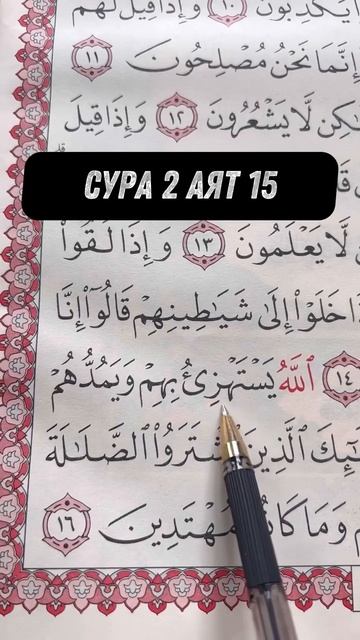 يَكْذِبُونَ ١٠ وَإِذَا قِيلَ لَهُمْ
إِنَّمَا نَحْنُ مُصْلِحُونَ ١١
لَّا يَشْعُرُونَ ١٢ وَإِذَا قِيلَ
СУРА 2 АЯТ 15
لَّا يَعْلَمُونَ ١٣ وَإِذَا لَقُوا۟
خَلَوْا۟ إِلَىٰ شَيَـٰطِينِهِمْ قَالُوٓا۟ إِنَّا
١٤ ٱللَّهُ يَسْتَهْزِئُ بِهِمْ وَيَمُدُّهُمْ
ٱلَّذِينَ ٱشْتَرَوُا۟ ٱلضَّلَـٰلَةَ
وَمَا كَانُوا۟ مُهْتَدِينَ ١٦